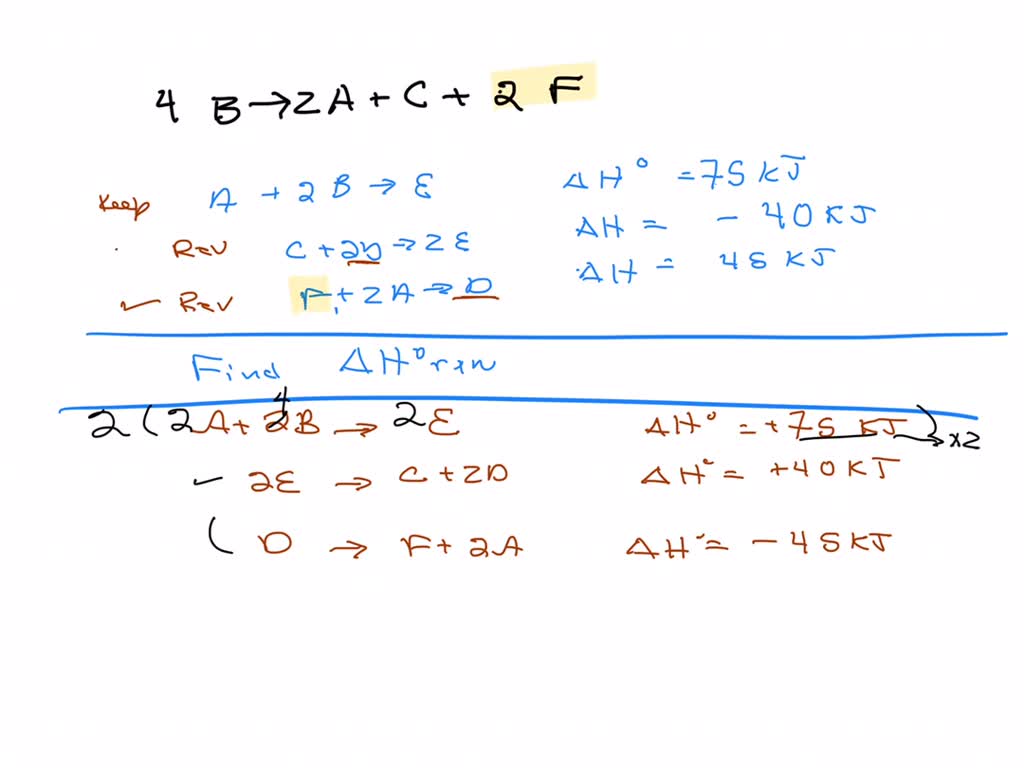 4 B → 2A + C + 2 F
Keep A + 2 B → E ΔH° = 75 KJ
Rev C + 2D → 2 E ΔH = - 40 KJ
✓ Rev F + 2A → D ΔH = 45 KJ
Find ΔH°rxn
2 ( 2A + 4 2B → 2 E ΔH° = +75 KJ ) → x2
✓ 2E → C + 2D ΔH° = +40 KJ
( D → F + 2A ΔH° = - 45 KJ